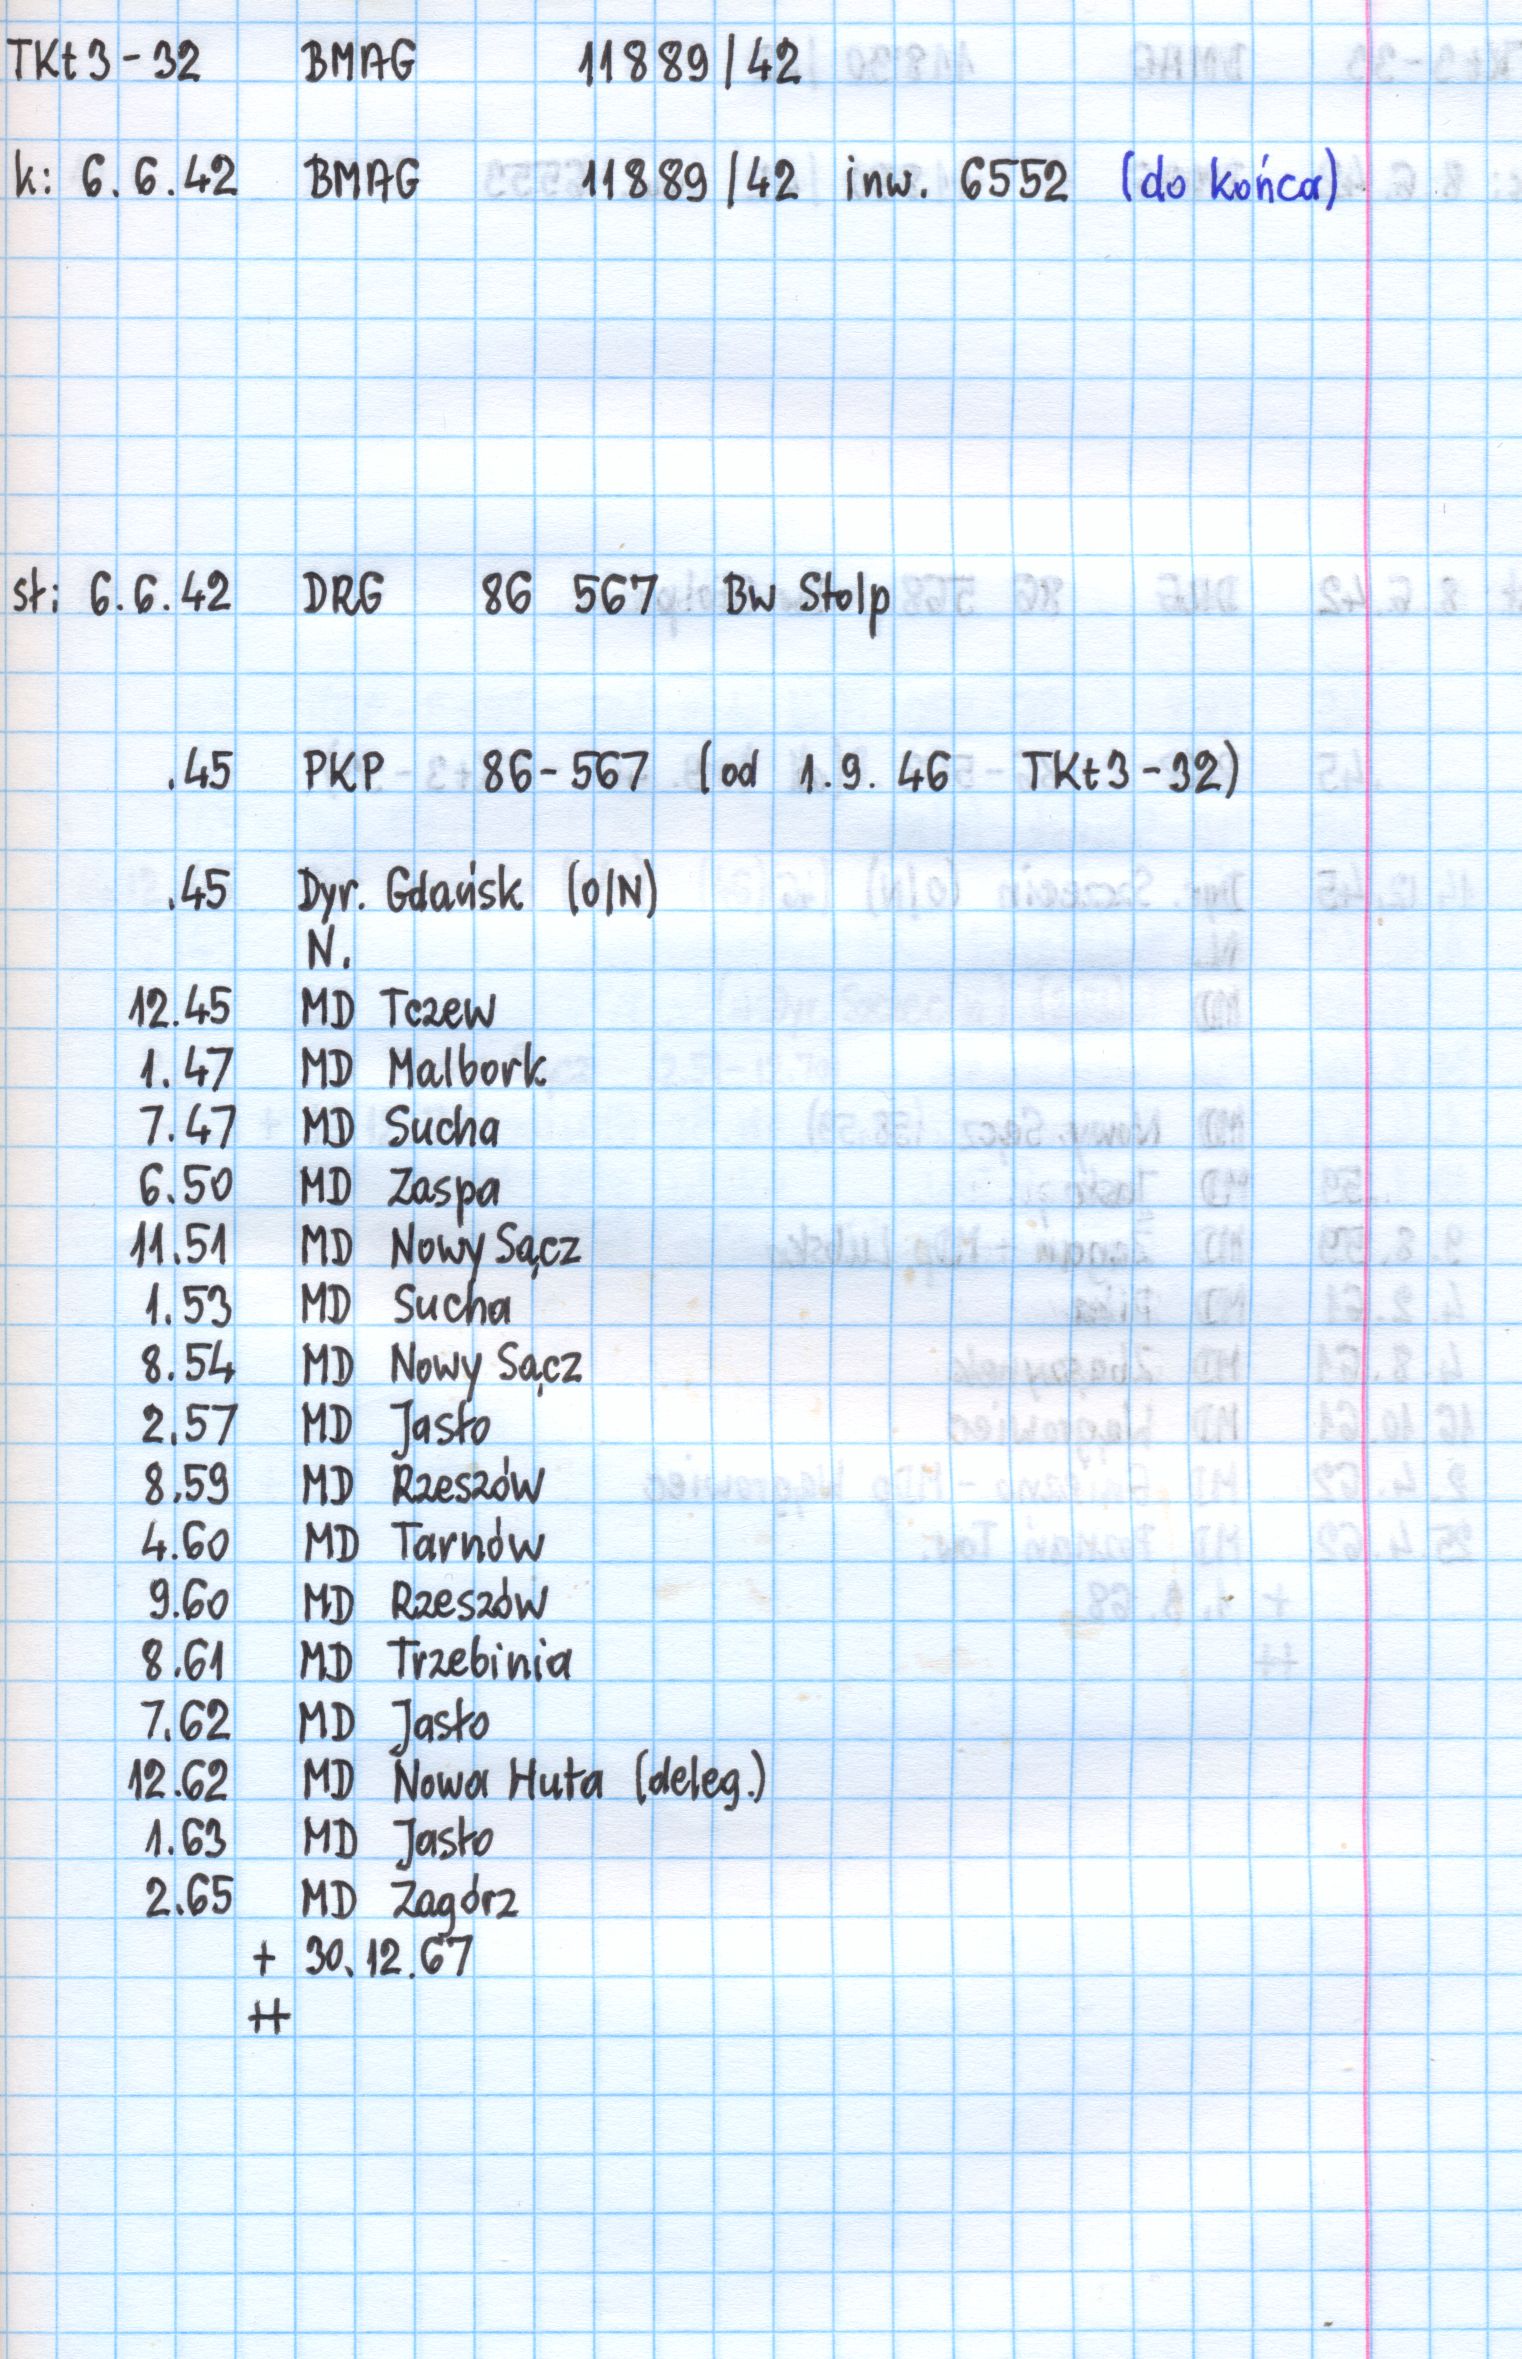 TKt3-32 BMAG 11889/42
k: 6.6.42 BMAG 11889/42 inw. 6552 (do końca)
st: 6.6.42 DRG 86 567 Bw Stolp
.45 PKP 86-567 (od 1.9.46 TKt3-32)
.45 Dyr. Gdańsk (O/N)
N.
12.45 MD Tczew
1.47 MD Malbork
7.47 MD Sucha
6.50 MD Zaspa
11.51 MD Nowy Sącz
1.53 MD Sucha
8.54 MD Nowy Sącz
2.57 MD Jasło
8.59 MD Rzeszów
4.60 MD Tarnów
9.60 MD Rzeszów
8.61 MD Trzebinia
7.62 MD Jasło
12.62 MD Nowa Huta (deleg.)
1.63 MD Jasło
2.65 MD Zagórz
+ 30.12.67
++